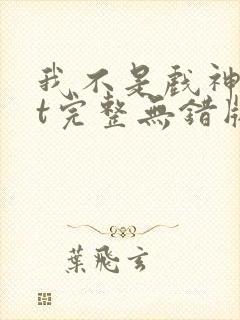 我不是戲神
t完整無錯版
葉飛玄